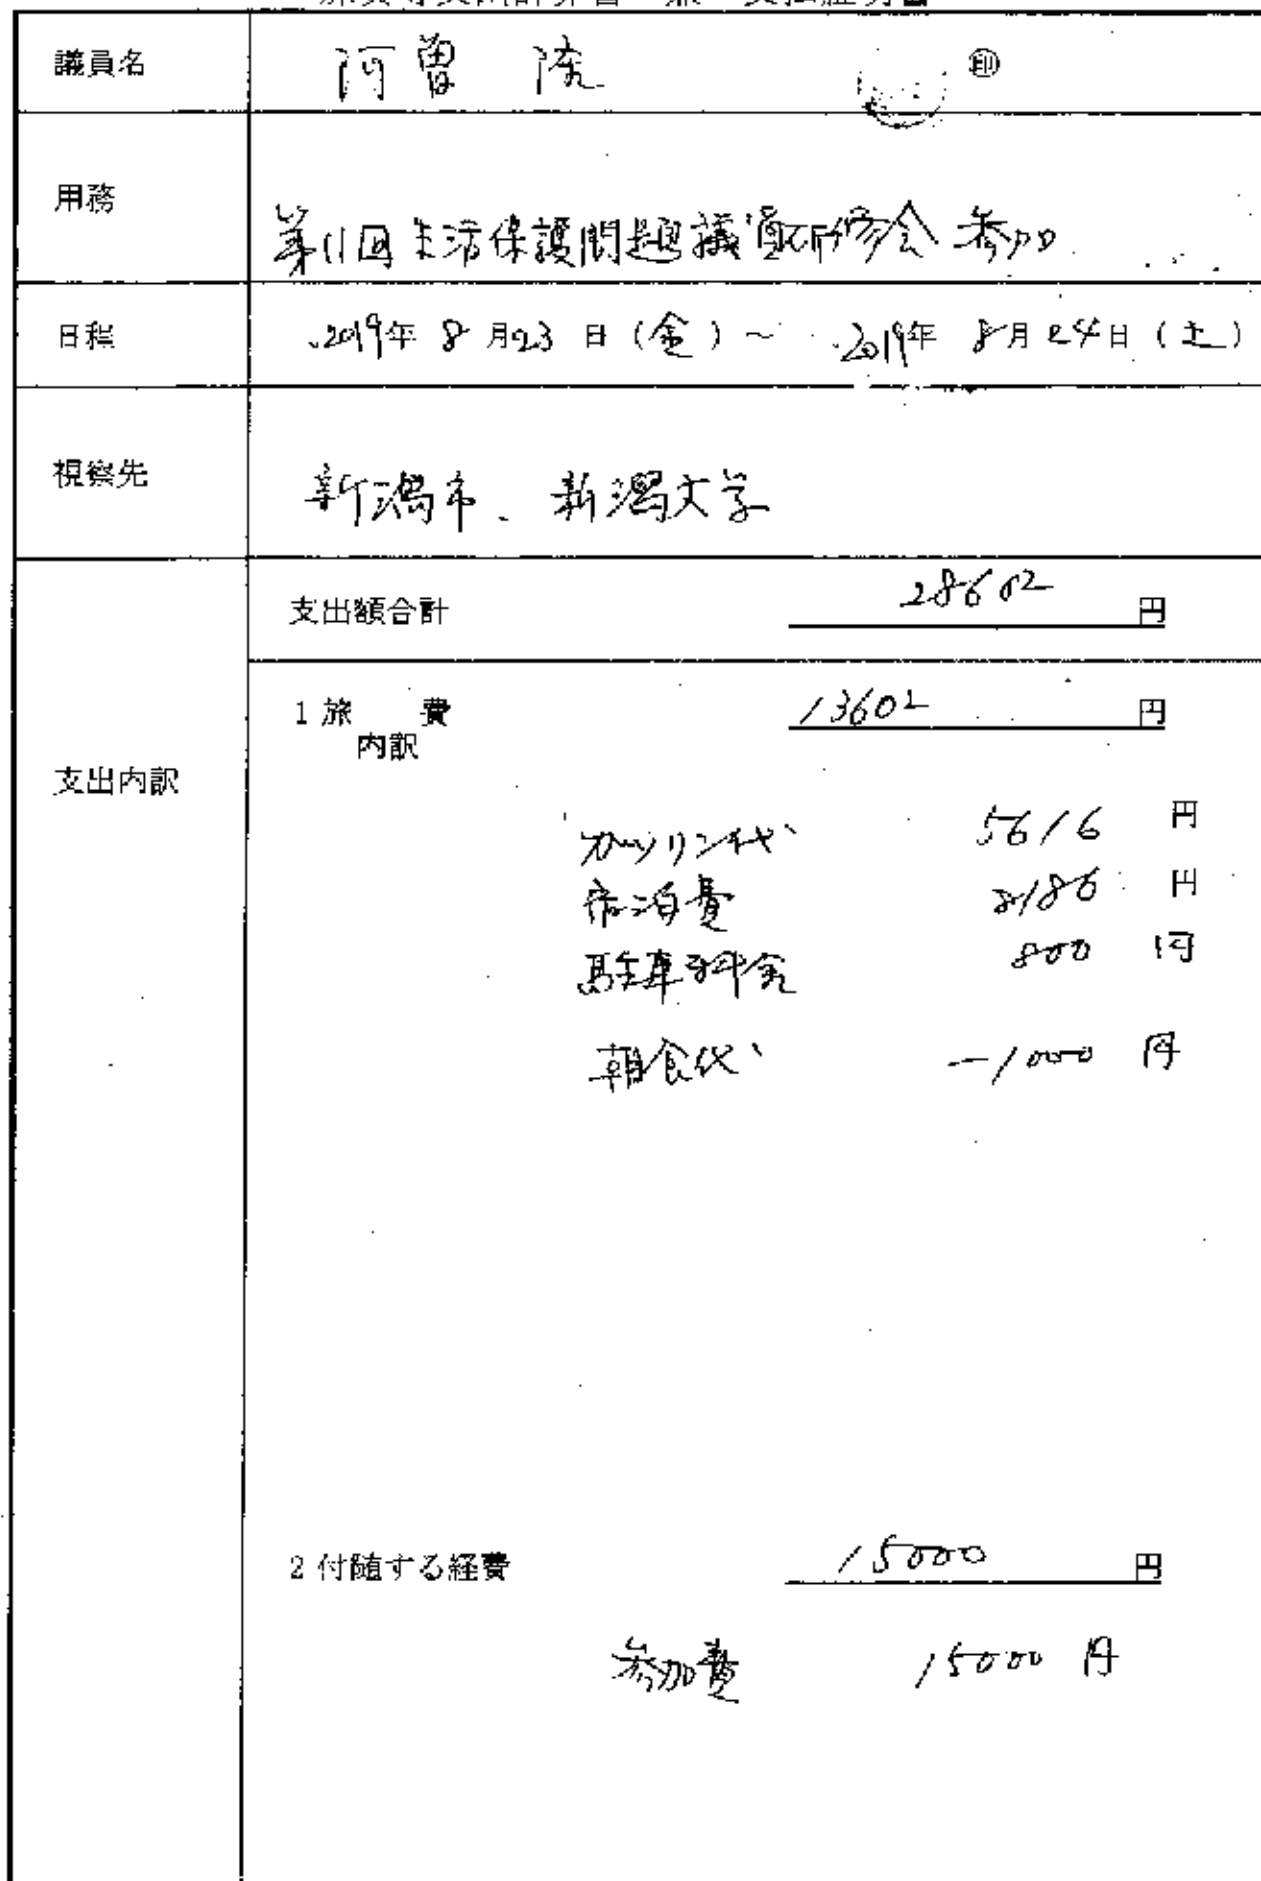 議員名 阿曽 隆 ㊞
用務 第11回生活保護問題議員研修会 参加
日程 2019年 8月23日(金)~ 2019年 8月24日(土)
視察先 新潟市、新潟大学
支出内訳
支出額合計 28602 円
1 旅 費 13602 円
内訳
ガソリン代 5616 円
宿泊費 8186 円
駐車料金 800 円
朝食代 -1000 円
2 付随する経費 15000 円
参加費 15000 円